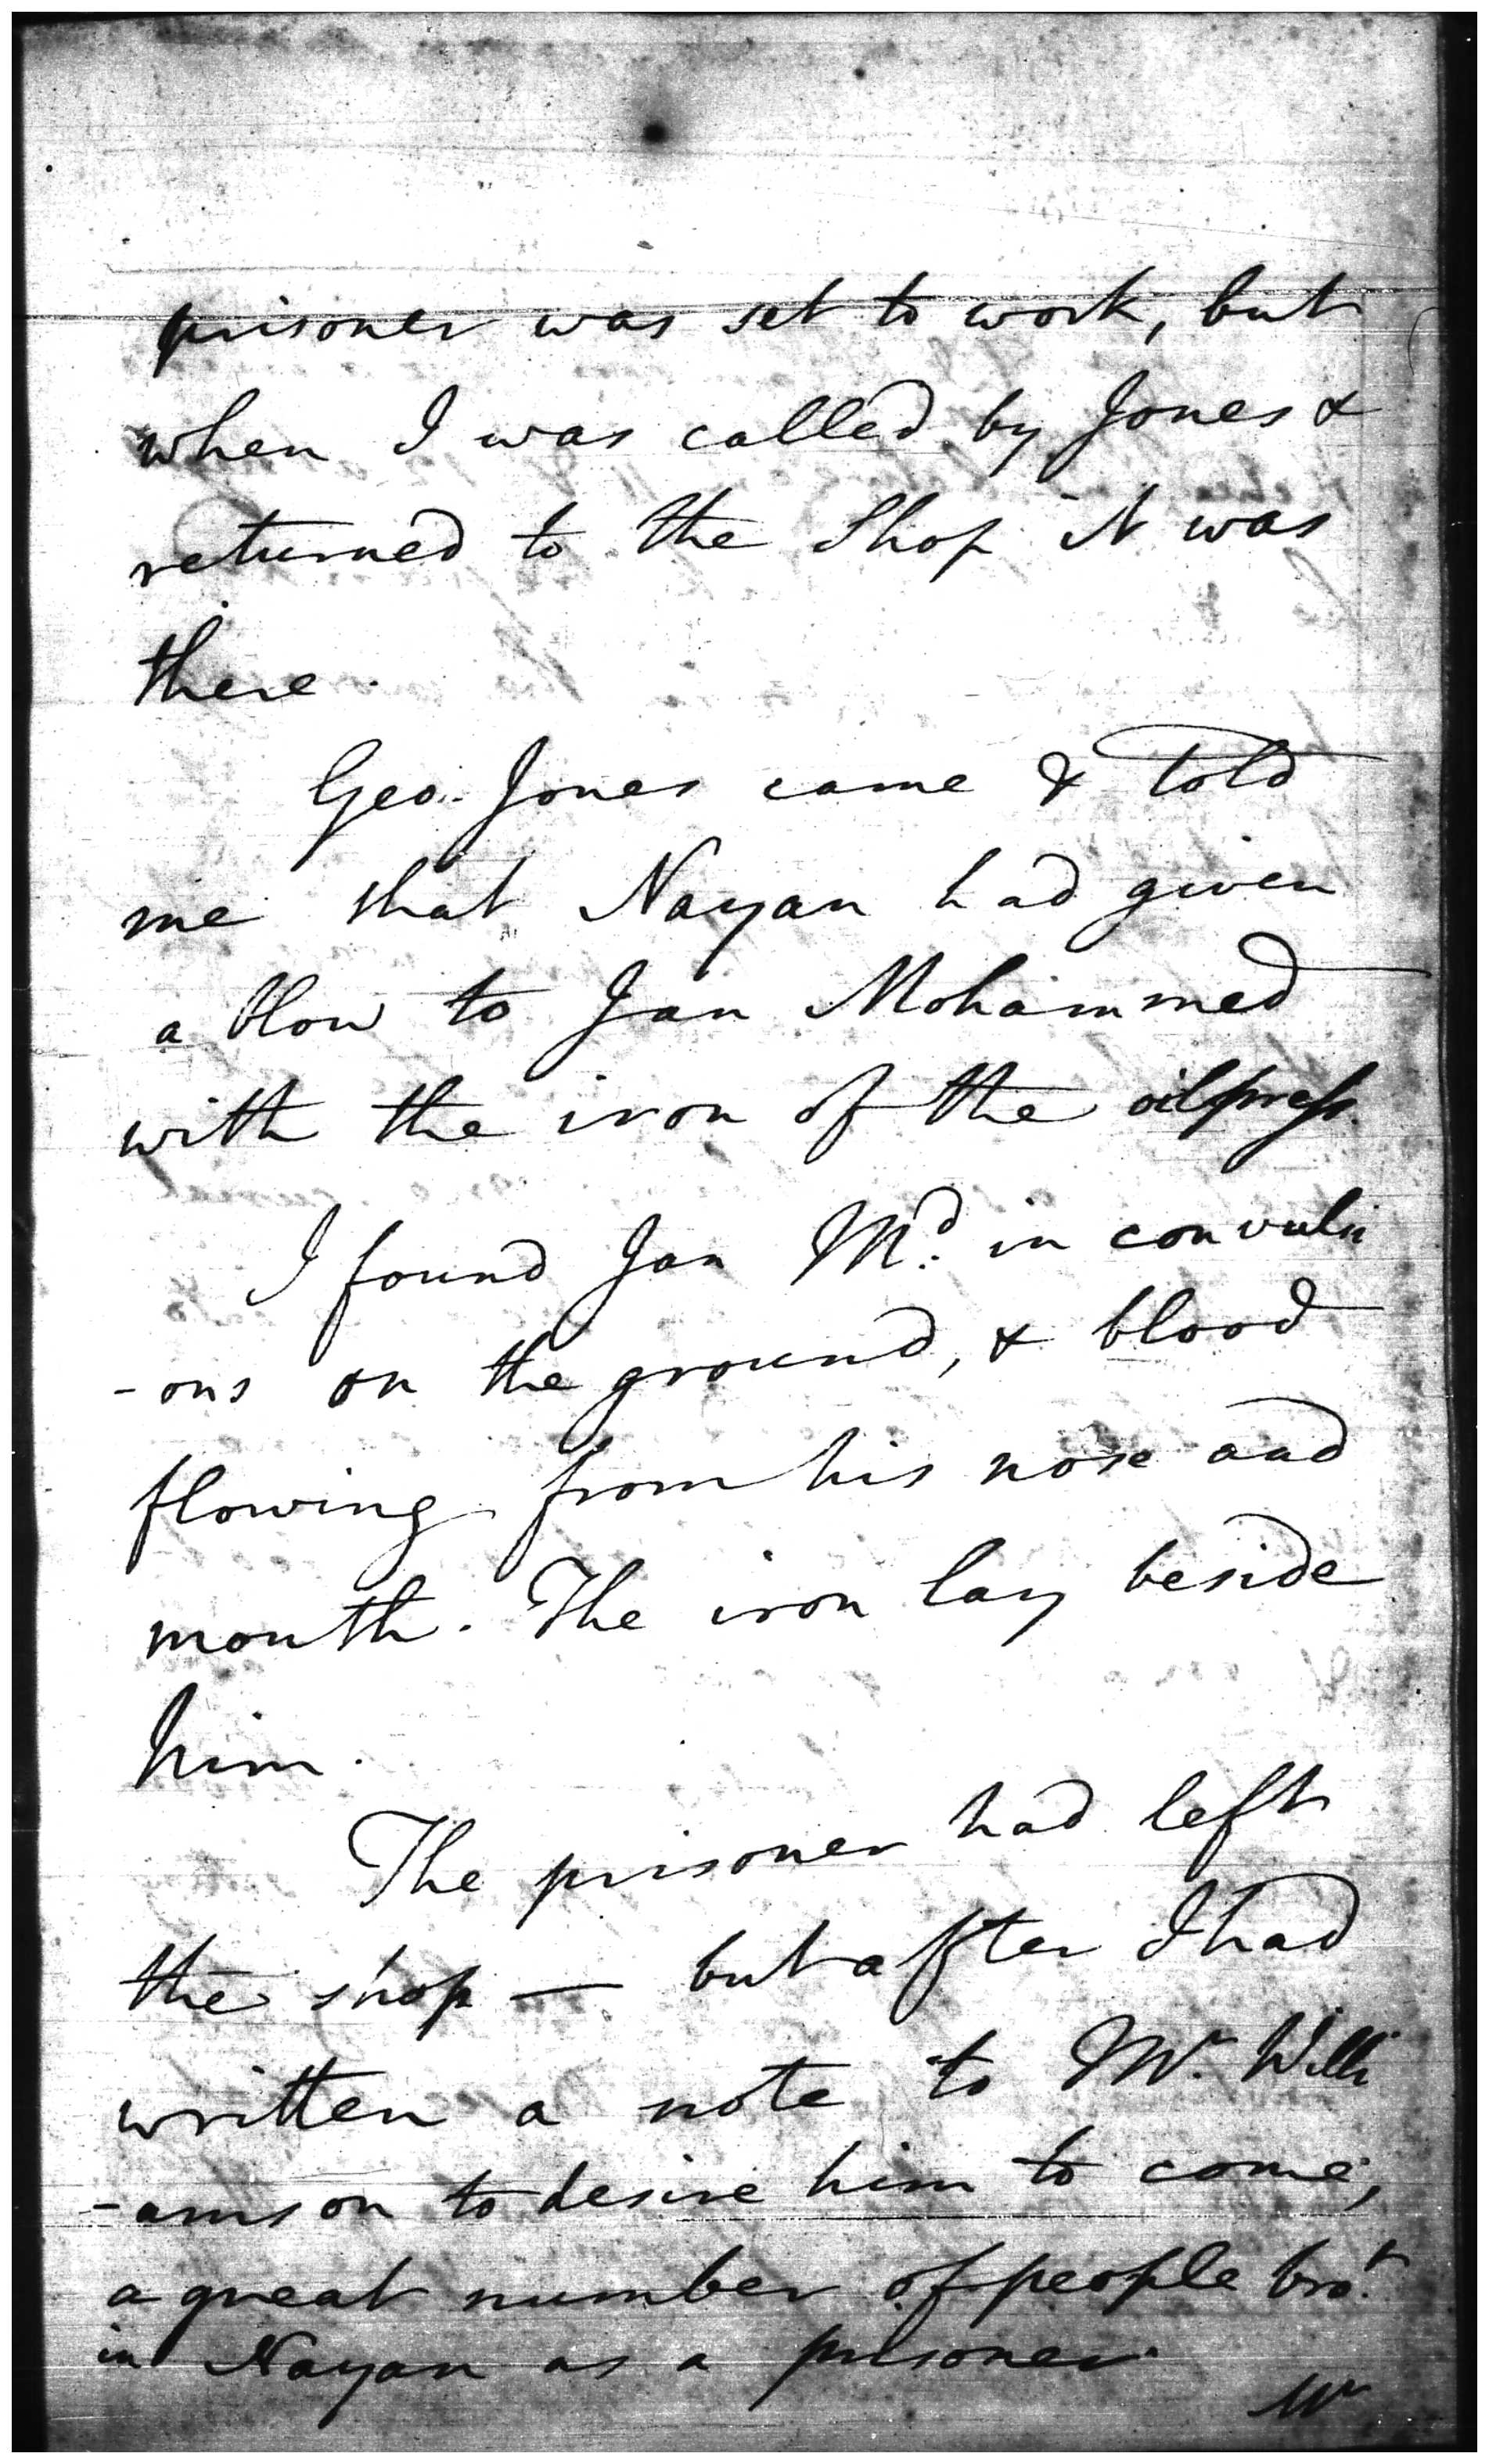 prisoner was set to work, but
when I was called by Jones &
returned to the Shop N was
there.
Geo. Jones came & told
me that Nayan had given
a blow to Jan Mohammed
with the iron of the oilpress.
I found Jan Md. in convulsi
- ons on the ground, & blood
flowing from his nose and
mouth. The iron lay beside
him.
The prisoner had left
the shop — but after I had
written a note to Mr. Willi
- amson to desire him to come,
a great number of people brot.
in Nayan as a prisoner.
Mr